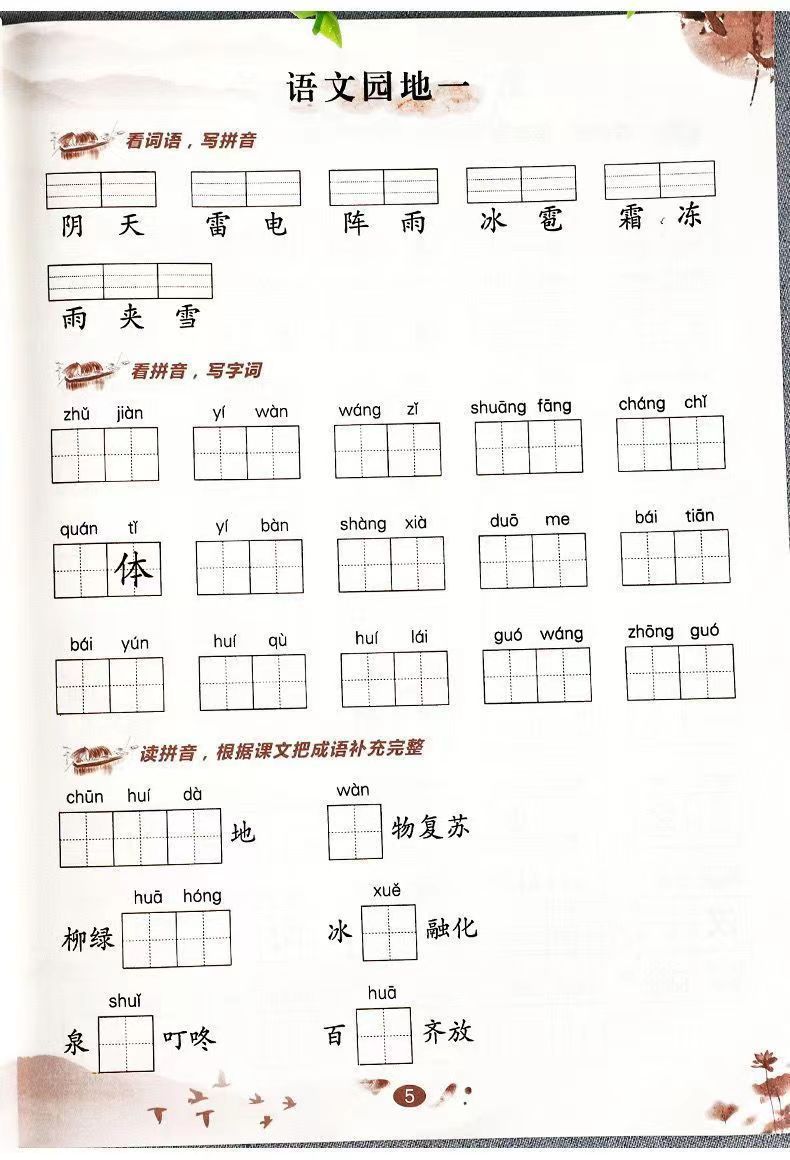 语文园地一
看词语，写拼音
阴 天 雷 电 阵 雨 冰 雹 霜 冻
雨 夹 雪
看拼音，写字词
zhǔ jiàn yí wàn wáng zǐ shuāng fāng cháng chǐ
quán tǐ yí bàn shàng xià duō me bái tiān
体
bái yún huí qù huí lái guó wáng zhōng guó
读拼音，根据课文把成语补充完整
chūn huí dà wàn
地 物复苏
huā hóng xuě
柳绿 冰 融化
shuǐ huā
泉 叮咚 百 齐放
5